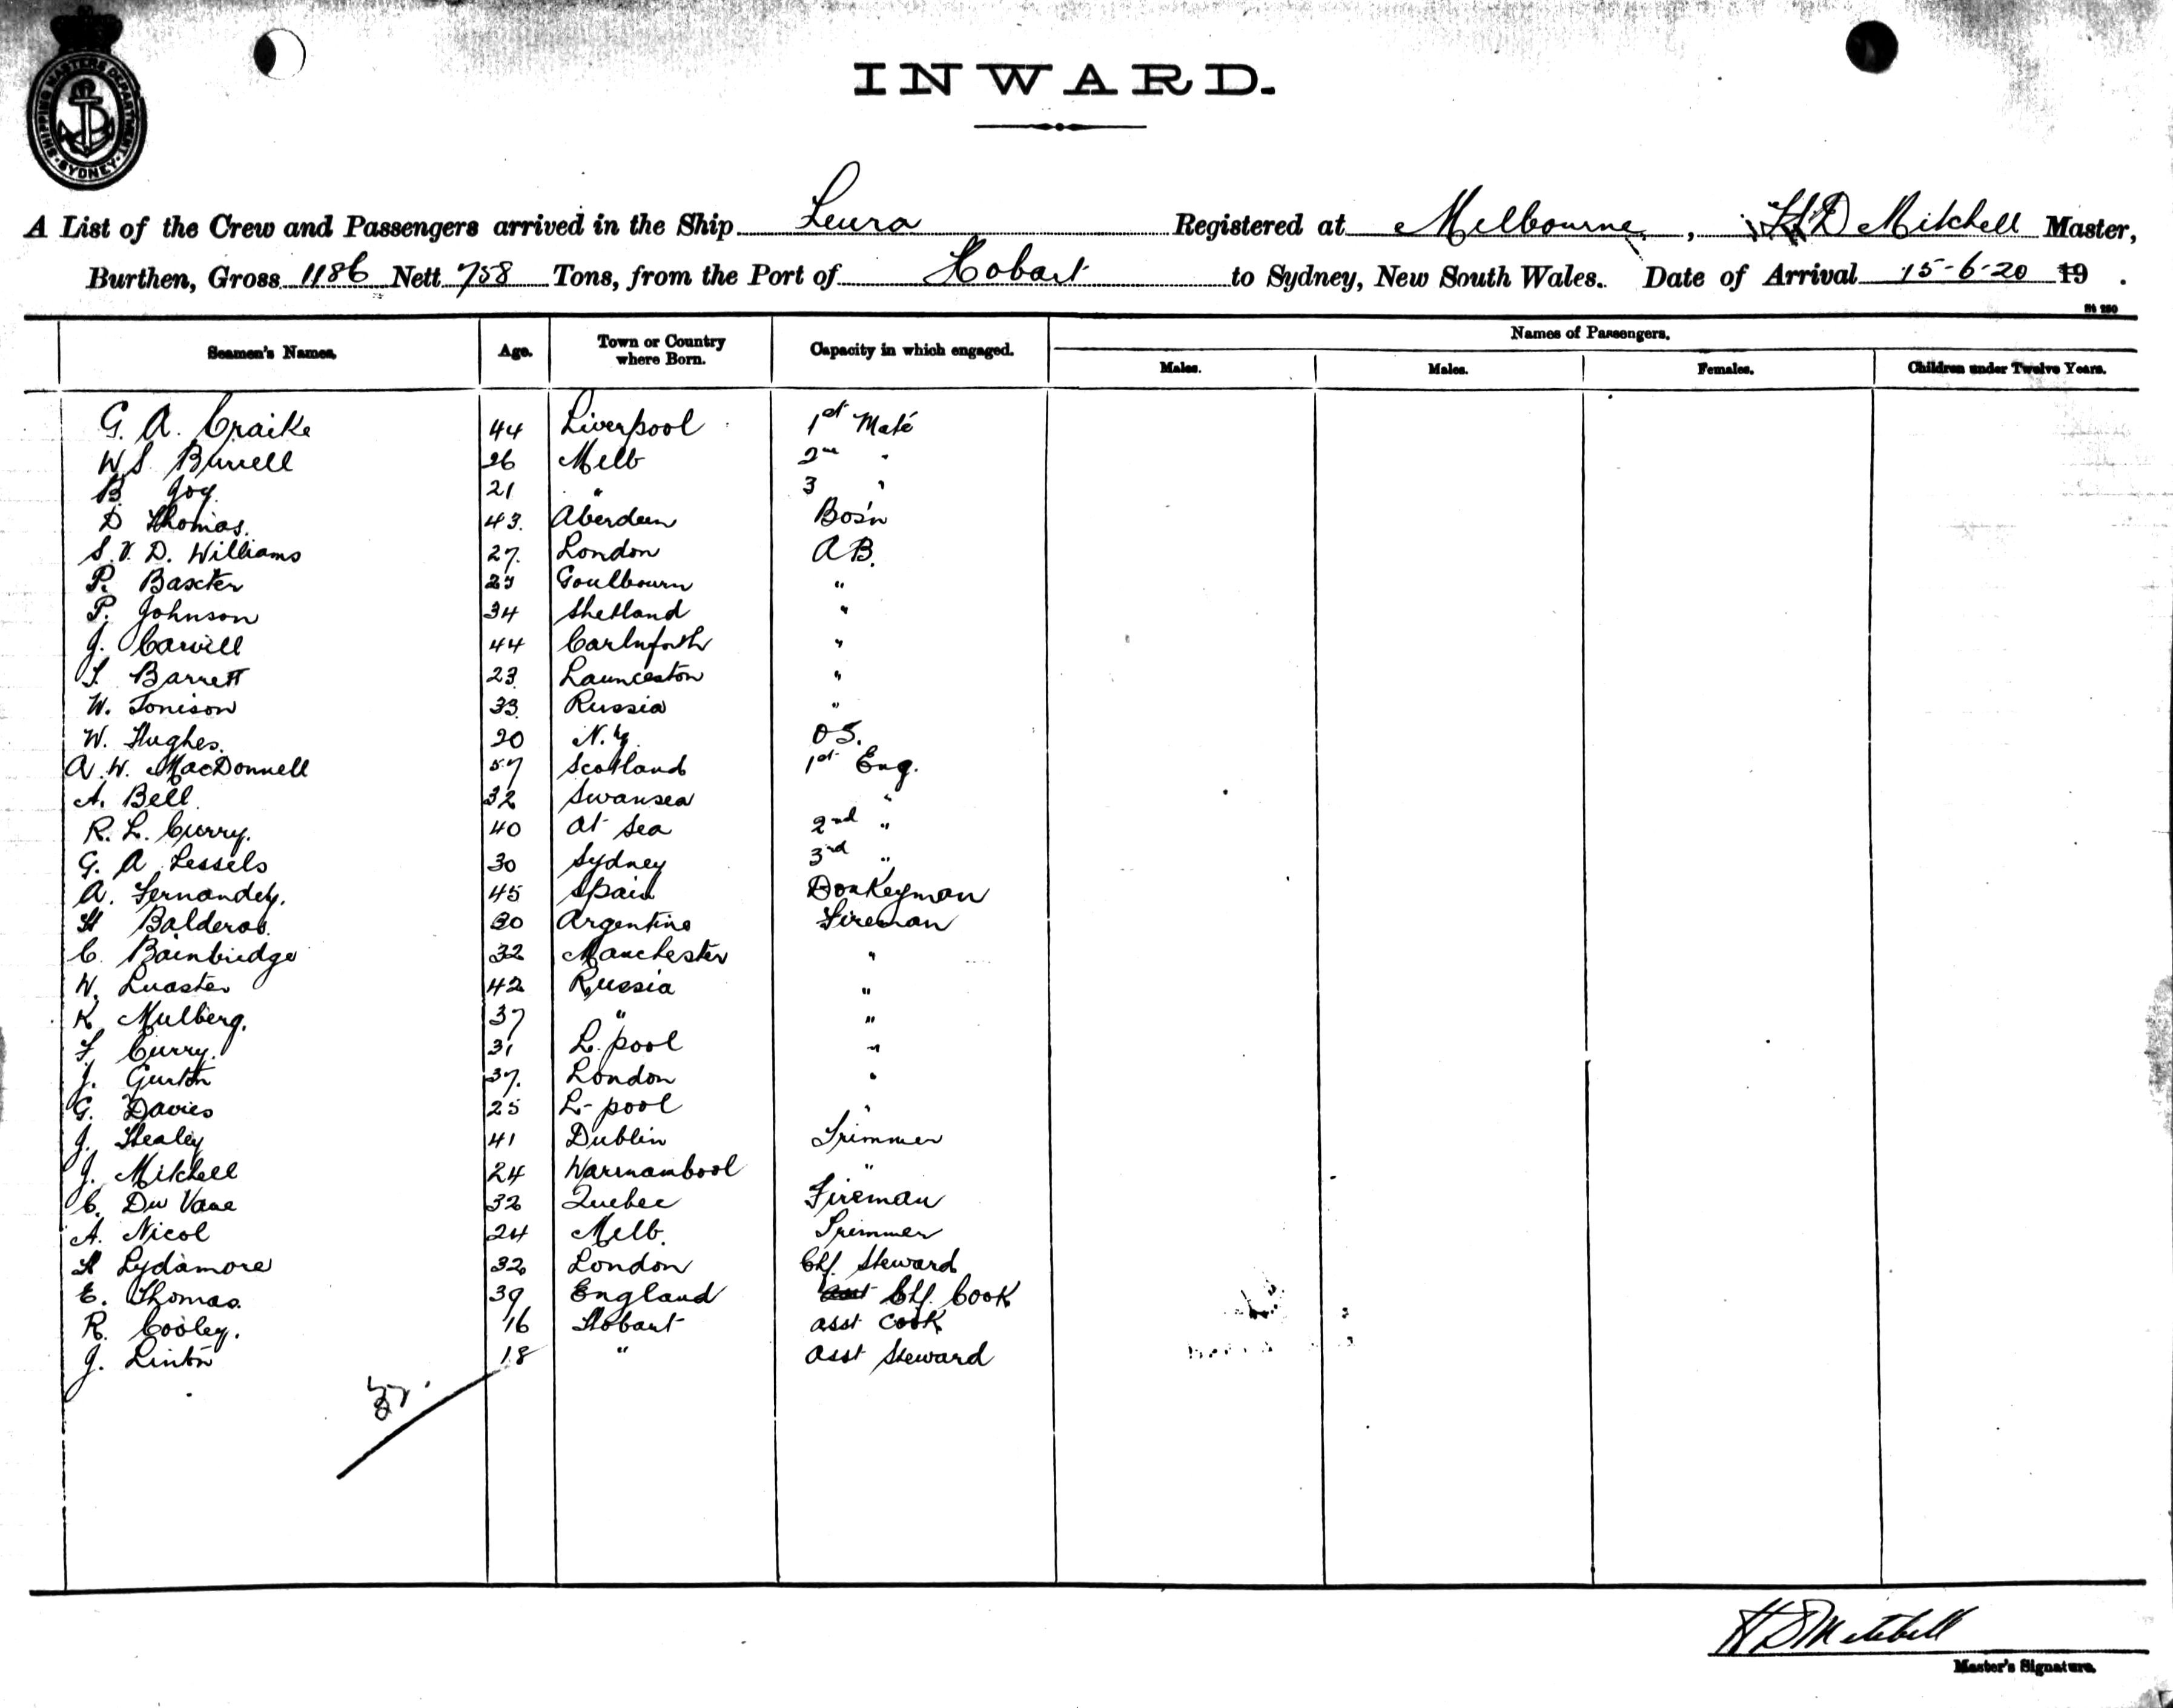 SHIPPING MASTERS DEPARTMENT SYDNEY
INWARD.
A List of the Crew and Passengers arrived in the Ship Leura Registered at Melbourne, H D Mitchell Master,
Burthen, Gross 1186 Nett 758 Tons, from the Port of Hobart to Sydney, New South Wales. Date of Arrival 15-6-20 19 .
Names of Passengers.
Seamen's Names. Age. Town or Country where Born. Capacity in which engaged. Males. Males. Females. Children under Twelve Years.
G. A. Craike 44 Liverpool 1st Mate
W S Burrell 26 Melb 2nd "
B Joy 21 " 3 "
D Thomas. 43. Aberdeen Bos'n
S. V. D. Williams 27. London A B.
P. Baxter Goulbourn "
P. Johnson 34 Shetland "
J. Carvill 44 Carlnforth "
Barrett 23 Launceston "
W. Tonison 33 Russia "
W. Hughes. 20 N.Z. O S.
A. W. MacDonnell 57 Scotland 1st Eng.
A. Bell 32 Swansea "
R. L. Curry. 40 At Sea 2nd "
G. A Lessels 30 Sydney 3rd "
A. Fernandez. 45 Spain Donkeyman
H Balderas. 30 Argentine Fireman
C. Bainbridge 32 Manchester "
W. Luaster 42 Russia "
K Mulberg. 37 " "
F Curry. 31 L. pool "
J. Gurton 37. London "
G. Davies 25 L- pool "
J. Healey 41 Dublin Trimmer
J. Mitchell 24 Warrnambool "
C. Du Vane 32 Quebec Fireman
A. Nicol 24 Melb. Trimmer
H Lydamore 32 London Chf. Steward
E. Thomas. 39 England Chf. Cook
R. Cooley. 16 Hobart asst Cook
J. Linton 18 " asst Steward
H D Mitchell
Master's Signature.